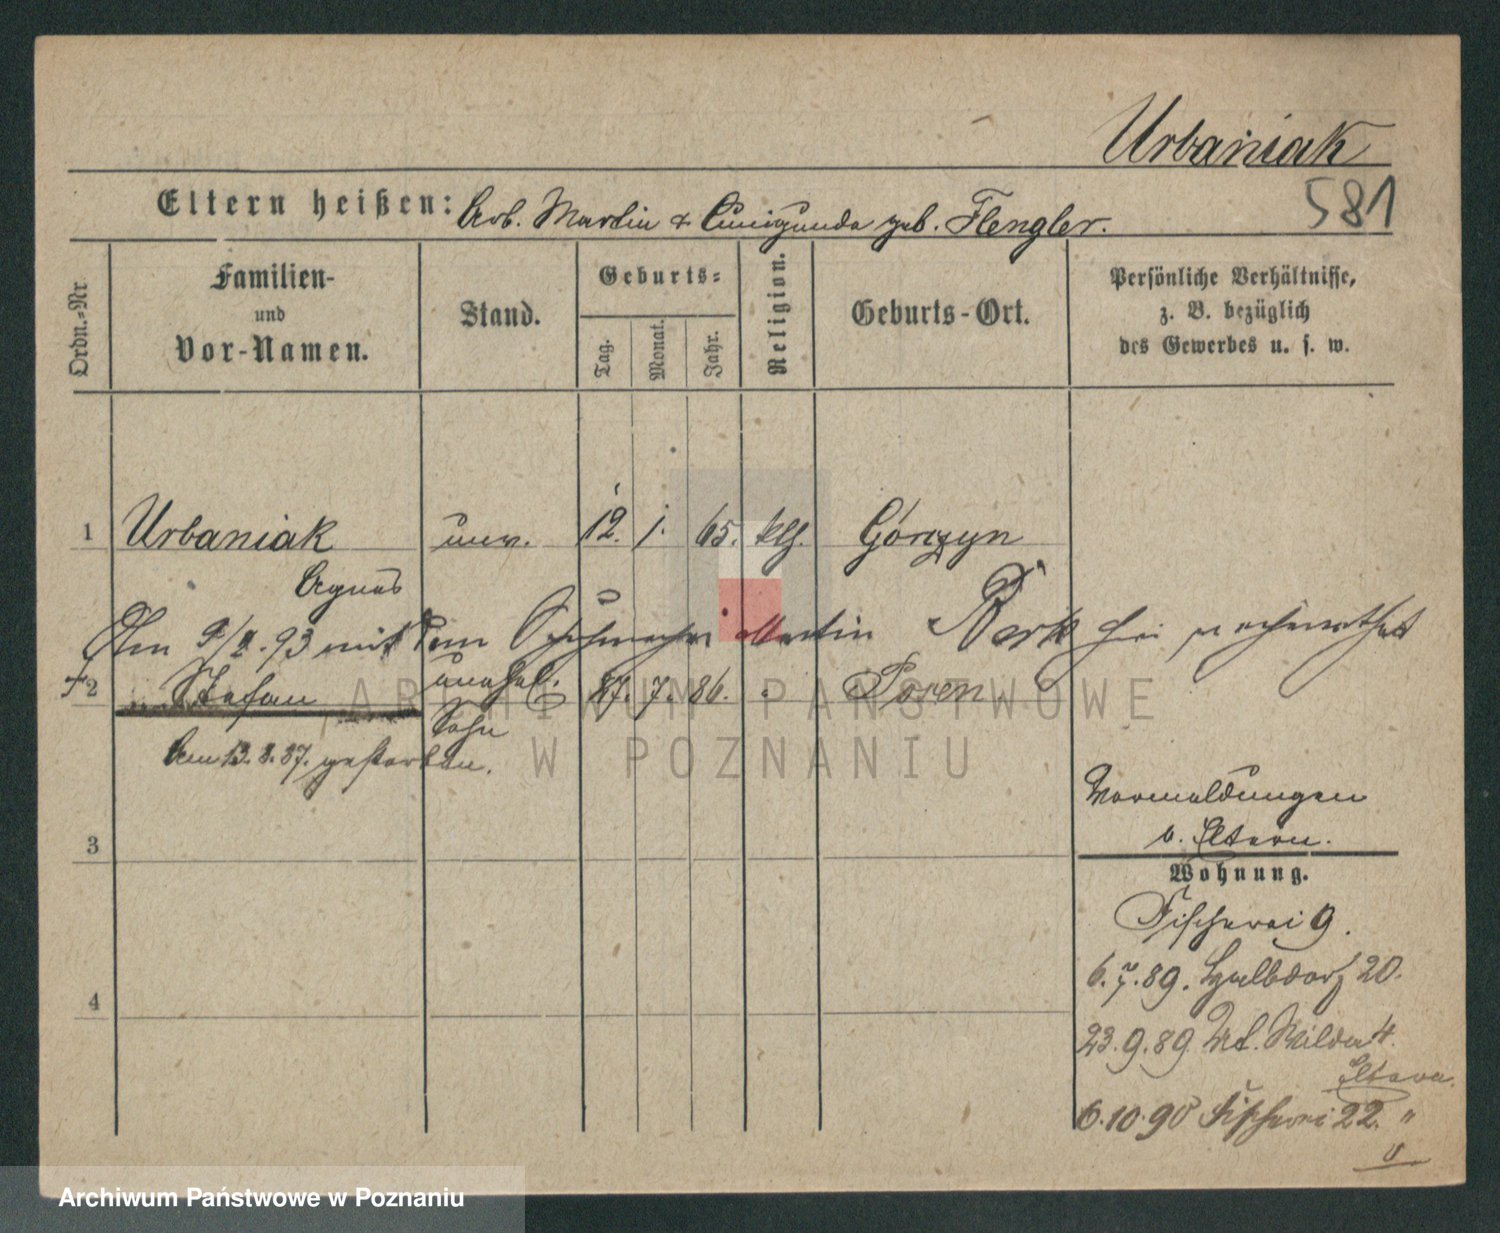 Urbaniak
581
Eltern heißen: Arb. Martin & Cunigunda geb. Flengler.
Ordn.-Nr
Familien-
und
Vor-Namen.
Stand.
Geburts-
Tag.
Monat.
Jahr.
Religion.
Geburts-Ort.
Persönliche Verhältnisse,
z. B. bezüglich
des Gewerbes u. s. w.
1 Urbaniak unv. 12. 1. 65. Górczyn
Agnes
Am 93 mit dem Schuhmacher Martin verheirathet
†2 Stefan unehel. 27. 7. 86. Posen
Sohn
Am 13. 8. 87. gestorben.
ARCHIWUM PAŃSTWOWE
W POZNANIU
Vormeldungen
b. Eltern.
3
Wohnung.
Fischerei 9.
6. 7. 89. Halbdorf 20.
4
23. 9. 89. Wilda 4.
Eltern.
6. 10. 90 Fischerei 22. "
Archiwum Państwowe w Poznaniu